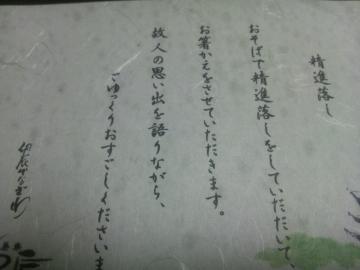 精進落し
おそばで精進落しをしていただいて、
お箸かえをさせていただきます。
故人の思い出を語りながら、
ごゆっくりおすごしくださいま